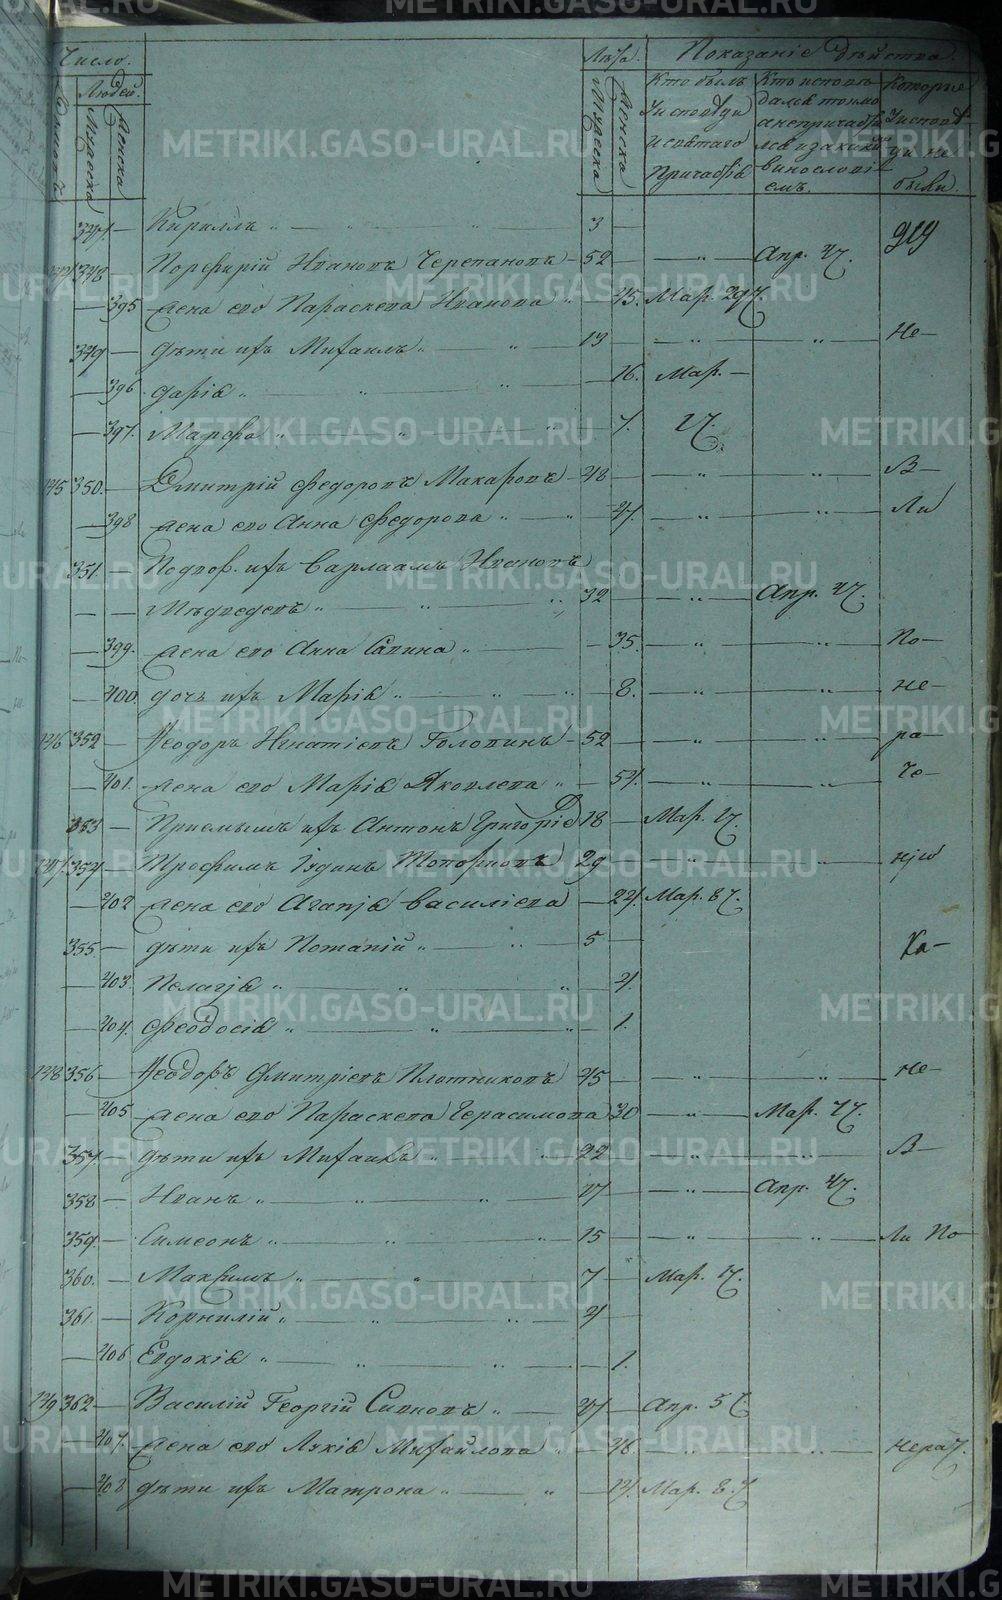 Число.
Лѣта.
Показаніе дѣйства.
Людей.
Дворовъ
Мужеска
Женска
Мужеска
Женска
Кто былъ
У исповѣди
и святаго
Причастія
Кто исповѣ
дался токмо
а непричаст
винословіемъ.
Которые
У исповѣ
ди не
были.
347. — Кириллъ 3 —
348 — Порфирій Ивановъ Черепановъ 52 — Апр. 27.
— 395 жена его Параскева Иванова — 45. Мар.
349 — дѣти ихъ Михаилъ 13 — Не—
— 396 Дарія — 16. Мар. —
— 397. Марфа — 7. 27.
145 350. — Дмитрій Федоровъ Макаровъ 48 — В—
— 398 жена его Анна Федорова — Ли
351 — Подвор. ихъ Варлаамъ Ивановъ
— — Мѣдведевъ 32 — Апр. 27.
— 399. жена его Анна Савина — 35. По—
— 400. дочь ихъ Марія — 8. не—
146 352 — Ѳеодоръ Игнатіевъ Головинъ 52 — ра—
— 401. жена его Марія Яковлева — 54. Че—
353 — Пріемышъ ихъ Антонъ Григоріевъ 18 — Мар. 17.
147 354 — Трофимъ Іудинъ Топорковъ 29 — нію
— 402 жена его Агапія Василіева — 24. Мар. 8
355 — дѣти ихъ Потапій 5 — Ха—
— 403. Пелагія — 4.
— 404. Феодосія — 1.
148 356 — Ѳеодоръ Дмитріевъ Плотниковъ 45 — не—
— 405 жена его Параскева Герасимова 30 Мар.
357. — дѣти ихъ Михаилъ 22 — В—
358 — Иванъ 17 — Апр. 27.
359. — Симеонъ 15 — Ли По
360. — Максимъ 7 — Мар. 17.
361. — Корнилій 4 —
— 406 Евдокія — 1.
149 362 — Василій Георгій 27 — Апр. 5
— 407. жена его Лукія Михайлова 26.
— 408 дѣти ихъ Матрона — Мар. 8.
METRIKI.GASO-URAL.RU